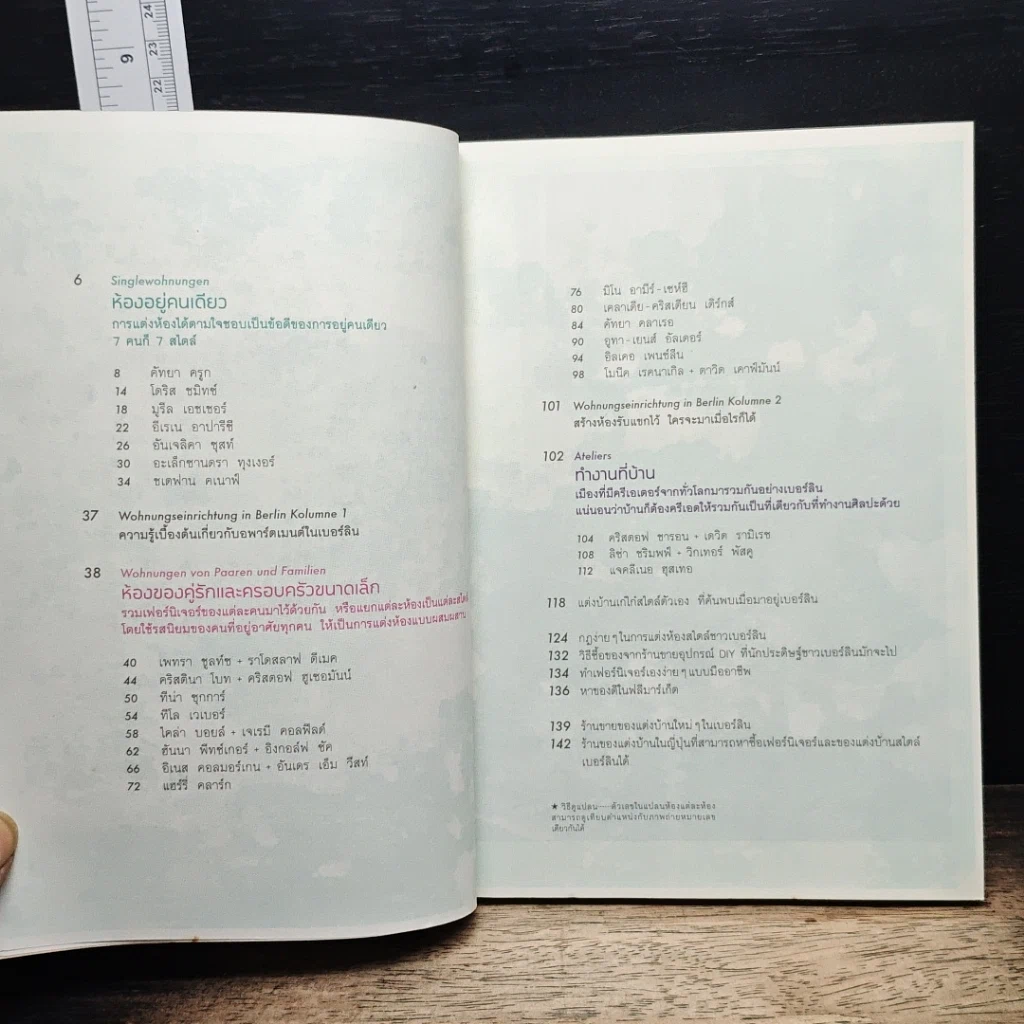 9
24
23
22
6 Singlewohnungen
ห้องอยู่คนเดียว
การแต่งห้องได้ตามใจชอบเป็นข้อดีของการอยู่คนเดียว
7 คนก็ 7 สไตล์
8 คัทยา ครูก
14 โดริส ชมิทซ์
18 มูรีล เอชเชอร์
22 อีเรเน อาปารีซี
26 อันเจลิคา ชุสท์
30 อะเล็กซานดรา ทุงเงอร์
34 ชเตฟาน คเนาฟ์
37 Wohnungseinrichtung in Berlin Kolumne 1
ความรู้เบื้องต้นเกี่ยวกับอพาร์ตเมนต์ในเบอร์ลิน
38 Wohnungen von Paaren und Familien
ห้องของคู่รักและครอบครัวขนาดเล็ก
รวมเฟอร์นิเจอร์ของแต่ละคนมาไว้ด้วยกัน หรือแยกแต่ละห้องเป็นแต่ละสไตล์
โดยใช้รสนิยมของคนที่อยู่อาศัยทุกคน ให้เป็นการแต่งห้องแบบผสมผสาน
40 เพทรา ชูลท์ซ + ราโดสลาฟ ดีเมค
44 คริสตินา ไบท + คริสตอฟ ฮูเซอมันน์
50 ทีน่า ชุกการ์
54 ทีโล เวเบอร์
58 ไคล่า บอยล์ + เจเรมี คอลฟิลด์
62 ฮันนา พีทช์เกอร์ + อิงกอล์ฟ ชัค
66 อิเนส คอลมอร์เกน + อันเดร เอ็ม วีสท์
72 แฮร์รี่ คลาร์ก
76 มิโน อามีร์-เซห์ฮี
80 เคลาเดีย-คริสเตียน เดิร์กส์
84 คัทยา คลาเรอ
90 อูทา-เยนส์ อัลเดอร์
94 อิลเคอ เพนซ์ลีน
98 โมนิค เรคนาเกิล + ดาวิด เคาฟ์มันน์
101 Wohnungseinrichtung in Berlin Kolumne 2
สร้างห้องรับแขกไว้ ใครจะมาเมื่อไรก็ได้
102 Ateliers
ทำงานที่บ้าน
เมืองที่มีครีเอเตอร์จากทั่วโลกมารวมกันอย่างเบอร์ลิน
แน่นอนว่าบ้านก็ต้องครีเอตให้รวมกันเป็นที่เดียวกับที่ทำงานศิลปะด้วย
104 คริสตอฟ ชารอน + เดวิด รามิเรซ
108 ลิซ่า ชริมพฟ์ + วิกเทอร์ พัสคู
112 แจคลีเนอ ฮุสเทอ
118 แต่งบ้านเก๋ไก๋สไตล์ตัวเอง ที่ค้นพบเมื่อมาอยู่เบอร์ลิน
124 กฎง่ายๆในการแต่งห้องสไตล์ชาวเบอร์ลิน
132 วิธีซื้อของจากร้านขายอุปกรณ์ DIY ที่นักประดิษฐ์ชาวเบอร์ลินมักจะไป
134 ทำเฟอร์นิเจอร์เองง่ายๆแบบมืออาชีพ
136 หาของดีในฟลีมาร์เก็ต
139 ร้านขายของแต่งบ้านใหม่ๆในเบอร์ลิน
142 ร้านของแต่งบ้านในญี่ปุ่นที่สามารถหาซื้อเฟอร์นิเจอร์และของแต่งบ้านสไตล์
เบอร์ลินได้
★ วิธีดูแปลน—ตัวเลขในแปลนห้องแต่ละห้อง
สามารถดูเทียบตำแหน่งกับภาพถ่ายหมายเลข
เดียวกันได้